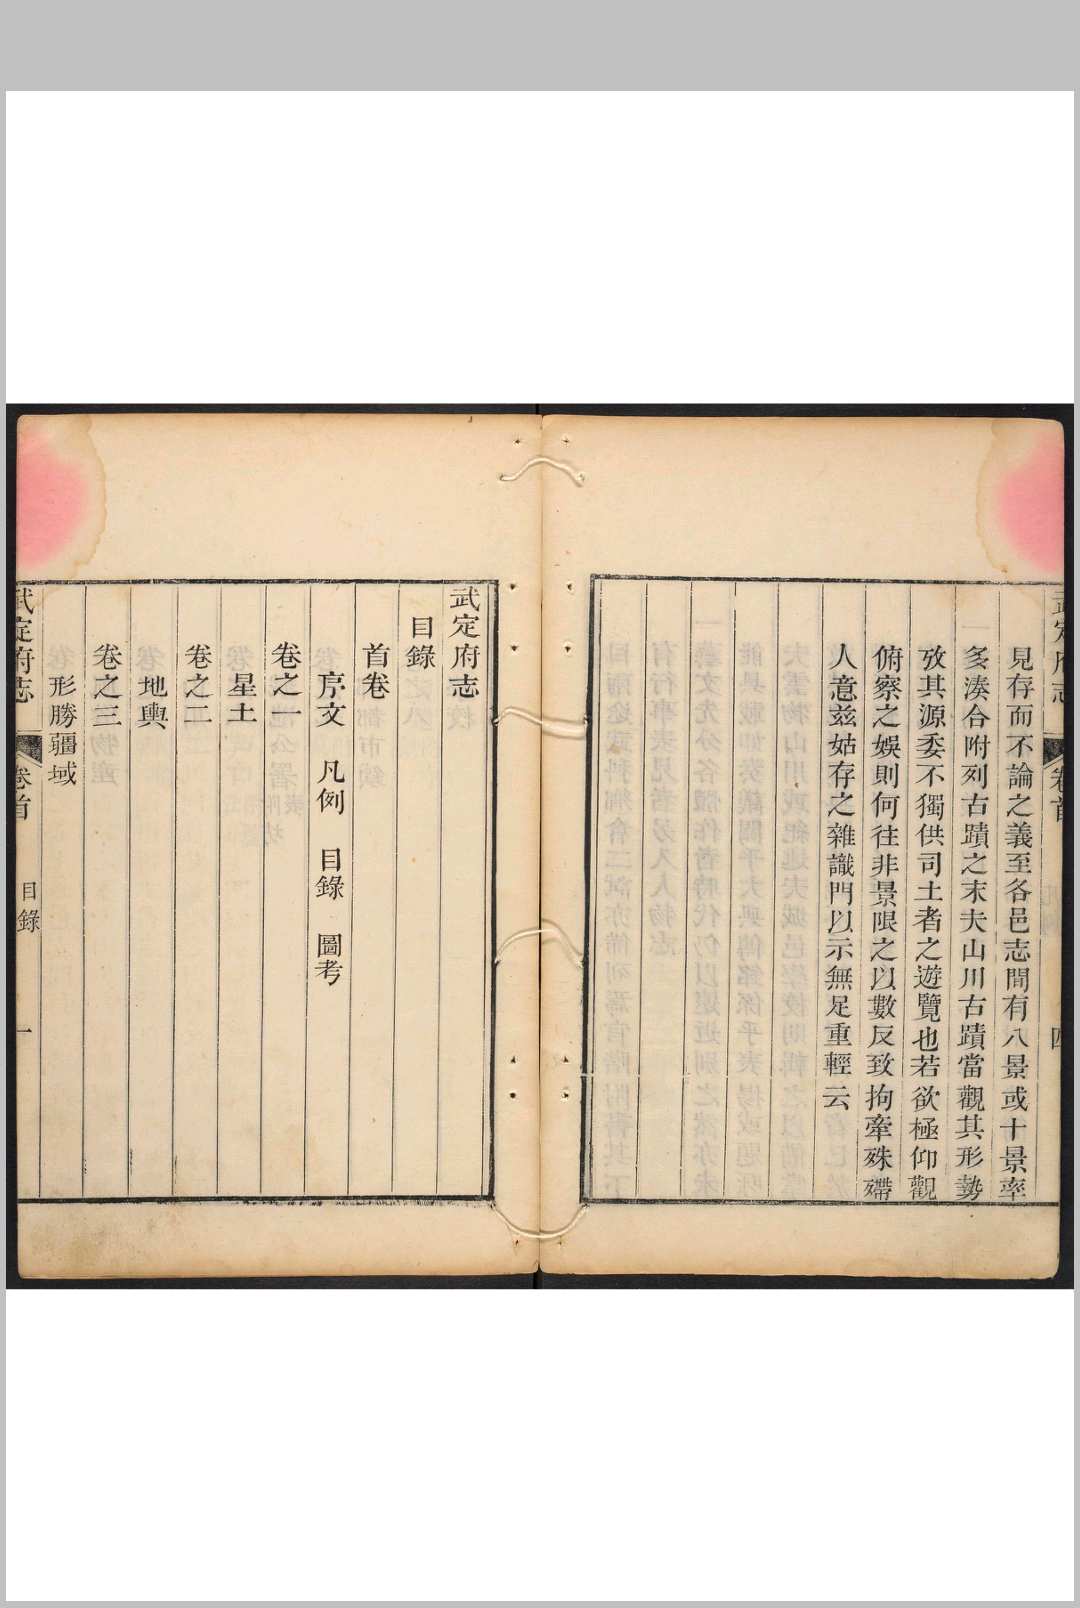 武定府志
卷首
四
見存而不論之義至各邑志間有八景或十景率
多湊合附列古蹟之末夫山川古蹟當觀其形勢
攷其源委不獨供司土者之遊覽也若欲極仰觀
俯察之娛則何往非景限之以數反致拘牽殊殢
人意兹姑存之雜識門以示無足重輕云
武定府志
目錄
首卷
序文 凡例 目錄 圖考
卷之一
星土
卷之二
地輿
卷之三
形勝疆域
武定府志
卷首
目錄
一